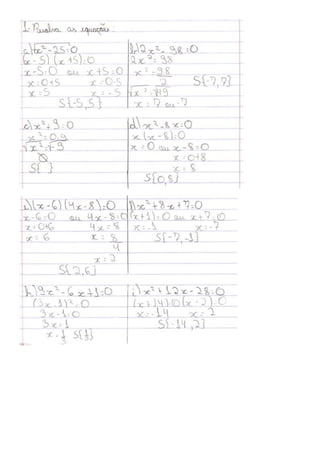 1- Resolva as equações:
a) x² - 25 = 0
(x - 5) (x + 5) = 0
x - 5 = 0 ou x + 5 = 0
x = 0 + 5 x = 0 - 5
x = 5 x = - 5
S{-5, 5}
b) 2x² - 98 = 0
2x² = 98
x² = 98
2
√x² = √49
x = 7 ou -7
S{-7, 7}
c) x² + 9 = 0
x² = 0 - 9
S{ }
d) x² - 8x = 0
x (x - 8) = 0
x = 0 ou x - 8 = 0
x = 0 + 8
x = 8
S{0, 8}
(x - 6) (4x - 8) = 0
x - 6 = 0 ou 4x - 8 = 0
x = 0 + 6 4x = 8
x = 6 x = 8
4
x = 2
S{2, 6}
x² + 8x + 7 = 0
(x + 1) = 0 ou x + 7 = 0
x = -1 x = -7
S{-7, -1}
h) 9x² - 6x + 1 = 0
(3x - 1)² = 0
3x - 1 = 0
3x = 1
x = 1/3 S{1/3}
i) x² + 12x - 28 = 0
(x + 14) (x - 2) = 0
x = -14 x = 2
S{-14, 2}